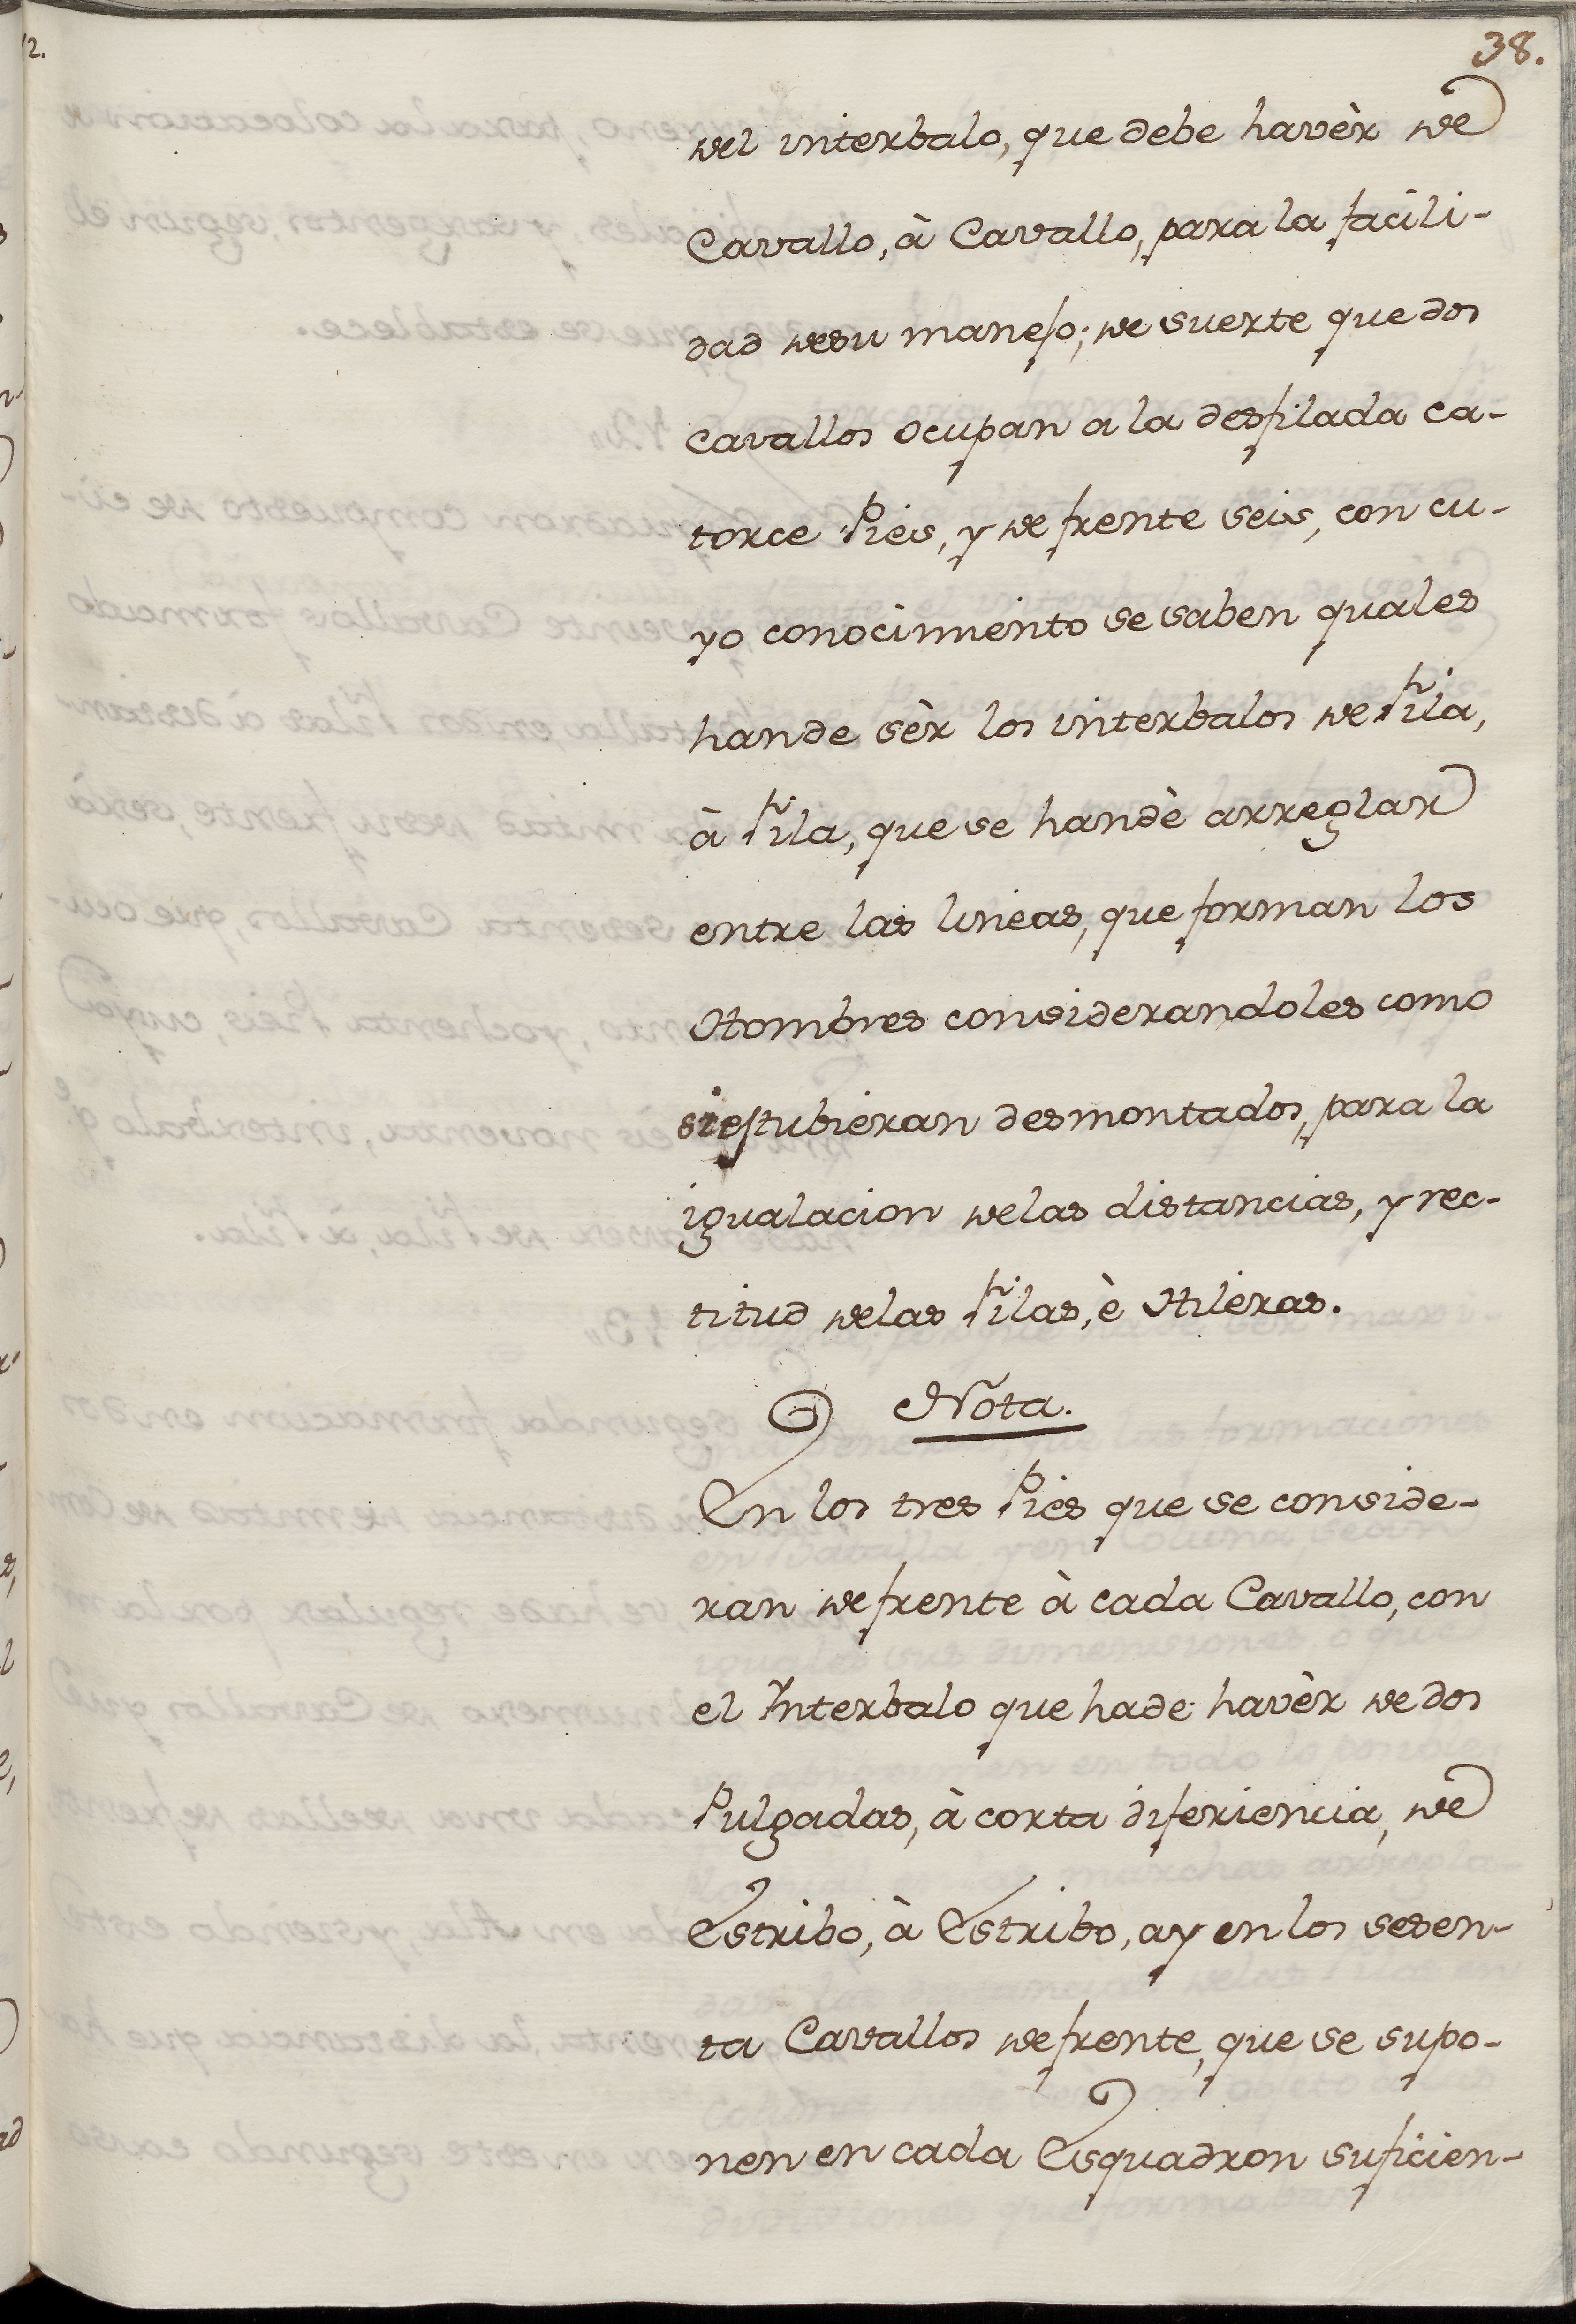 38.
del interbalo, que debe havèr de
Cavallo, à Cavallo, para la facili-
dad desu manejo; de suerte que dos
cavallos ocupan a la desfilada ca-
torce Pies, y de frente seis, con cu-
yo conocimiento se saben quales
hande sèr los interbalos de fila,
à fila, que se handè arreglar
entre las lineas, que forman los
Hombres considerandoles como
si estubieran desmontados, para la
igualacion delas distancias, y rec-
titud delas filas, è Hileras.
Nota.
En los tres Pies que se conside-
ran de frente à cada Cavallo, con
el Interbalo que hade havèr de dos
Pulgadas, à corta diferiencia, de
Estribo, à Estribo, ay en los sesen-
ta Cavallos de frente, que se supo-
nen en cada Esquadron suficien-